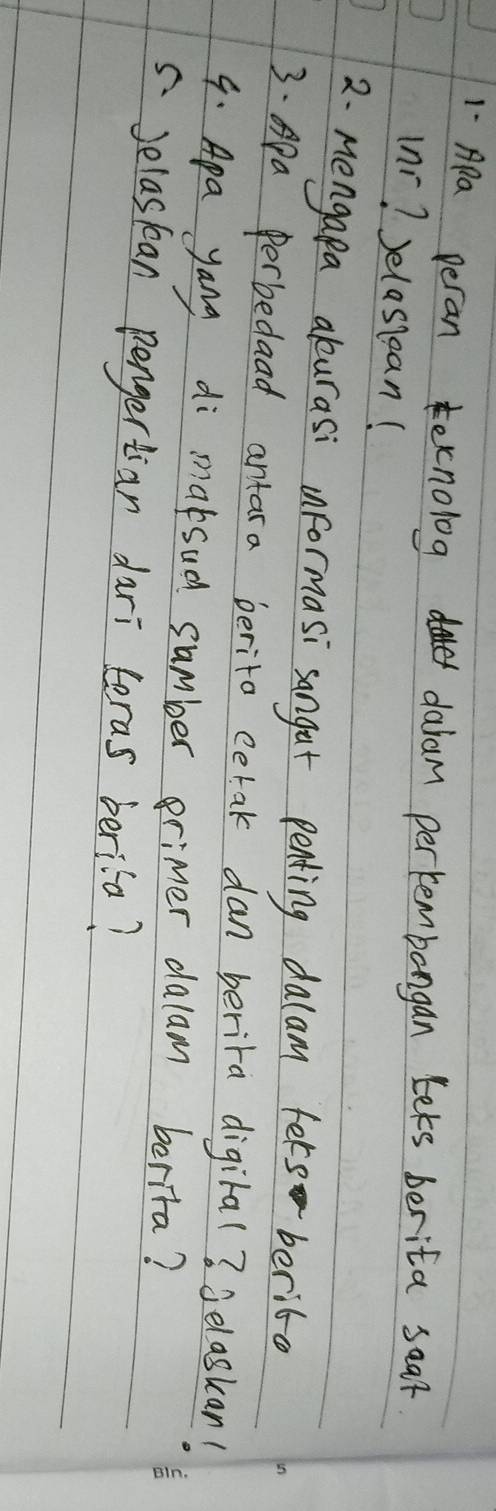 1. Apa peran teknolog dalam perkembangan teks berita saat
ini? Jelaskan!
2. Mengapa akurasi informasi sangat penting dalam teks berita
3. Apa perbedaad antara berita cetak dan berita digital? Jelaskan!
4. Apa yang di maksud sumber primer dalam berita?
5. Jelaskan pengertian dari teras berita?
5
Bln.